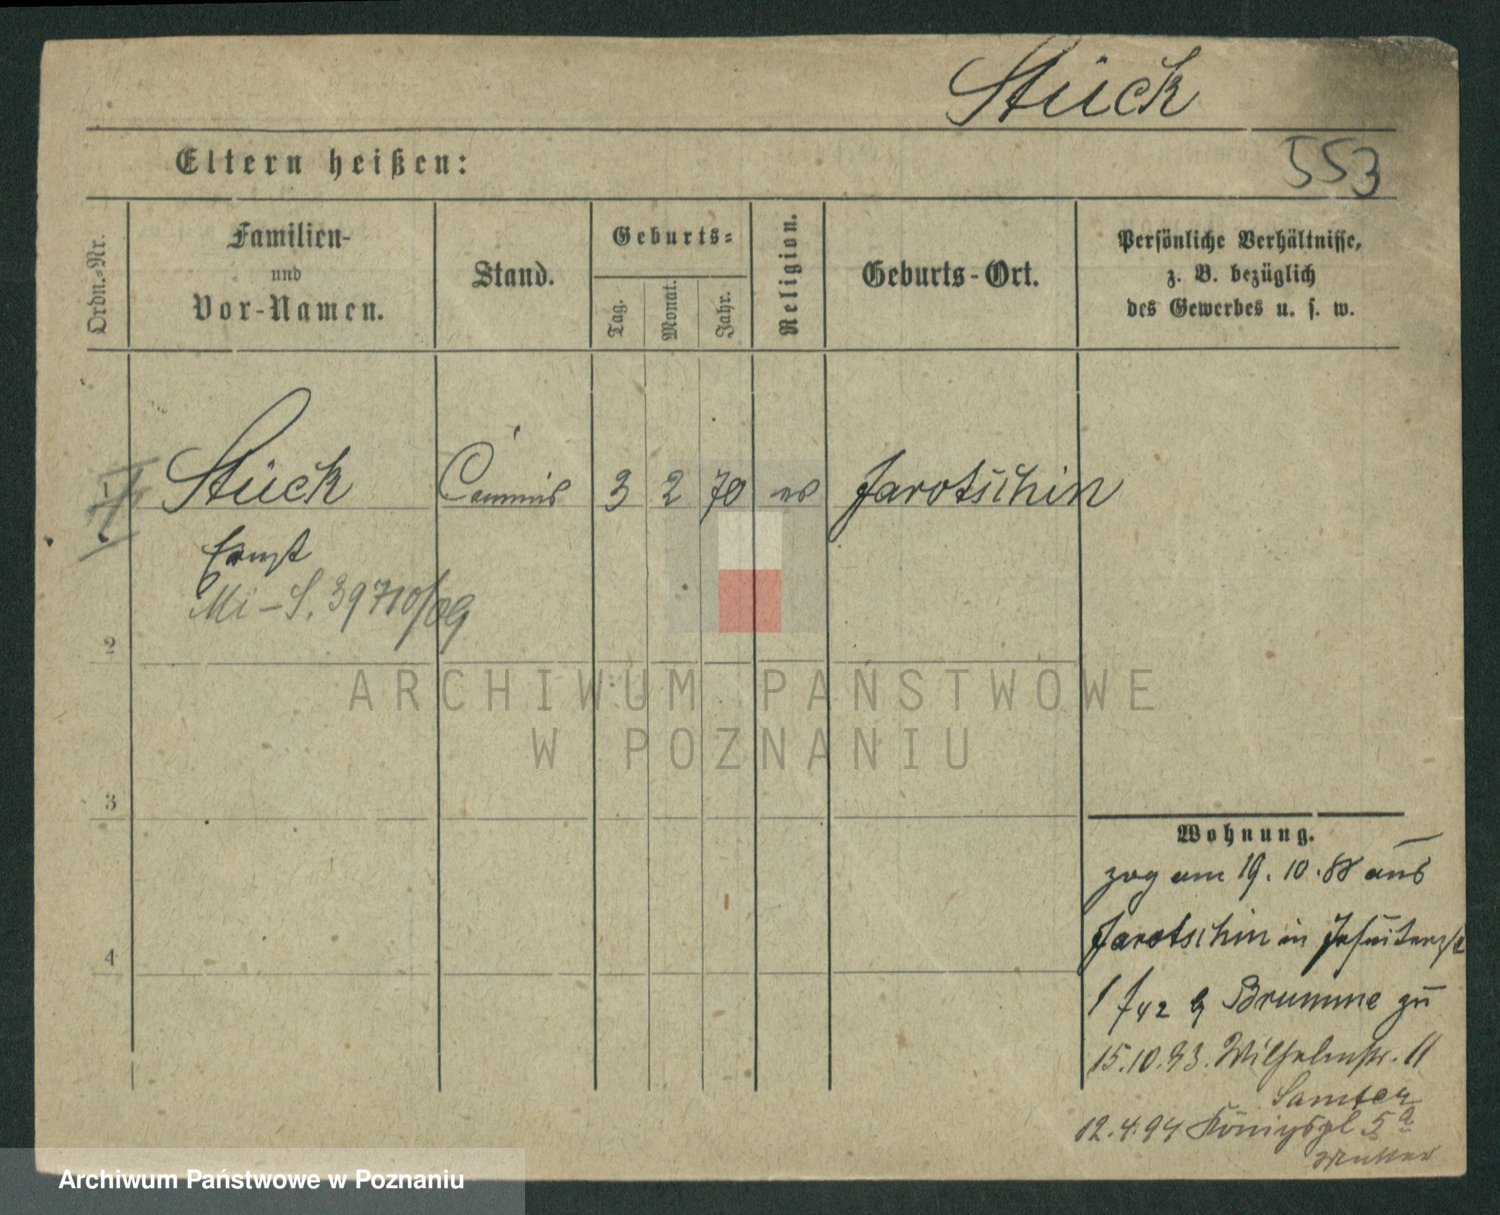 Stück
Eltern heißen:
553
Ordn.=Nr.
Familien-
und
Vor-Namen.
Stand.
Geburts=
Tag.
Monat.
Jahr.
Religion.
Geburts-Ort.
Persönliche Verhältnisse,
z. B. bezüglich
des Gewerbes u. s. w.
1 Stück Commis 3 2 70 Jarotschin
Ernst
Mi-S. 39710/09
2
ARCHIWUM PAŃSTWOWE
W POZNANIU
3
Wohnung.
zog am 19.10.88 aus
Jarotschin in
Brumme zu
15.10.93. Wilhelmstr. 11
Samter
12.4.94 Königspl 5a
Mutter
4
Archiwum Państwowe w Poznaniu